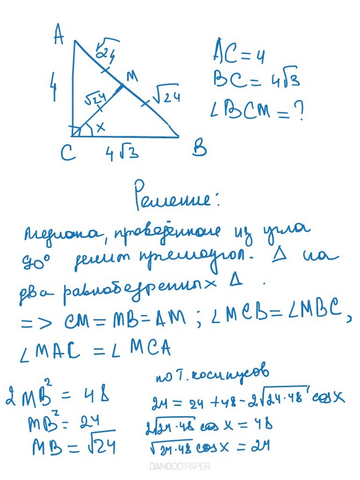 A
√24
4
M
√24
√24
x
C
4√3
B
AC=4
BC=4√3
∠BCM=?
Решение:
Медиана, проведённая из угла
90° делит прямоугол. Δ на
два равнобедренных Δ.
=> CM=MB=AM; ∠MCB=∠MBC,
∠MAC=∠MCA
2MB²=48
MB²=24
MB=√24
по Т. косинусов
24=24+48-2√24·48 cosx
2√24·48 cosx=48
√24·48 cosx=24
BAMBOO PAPER